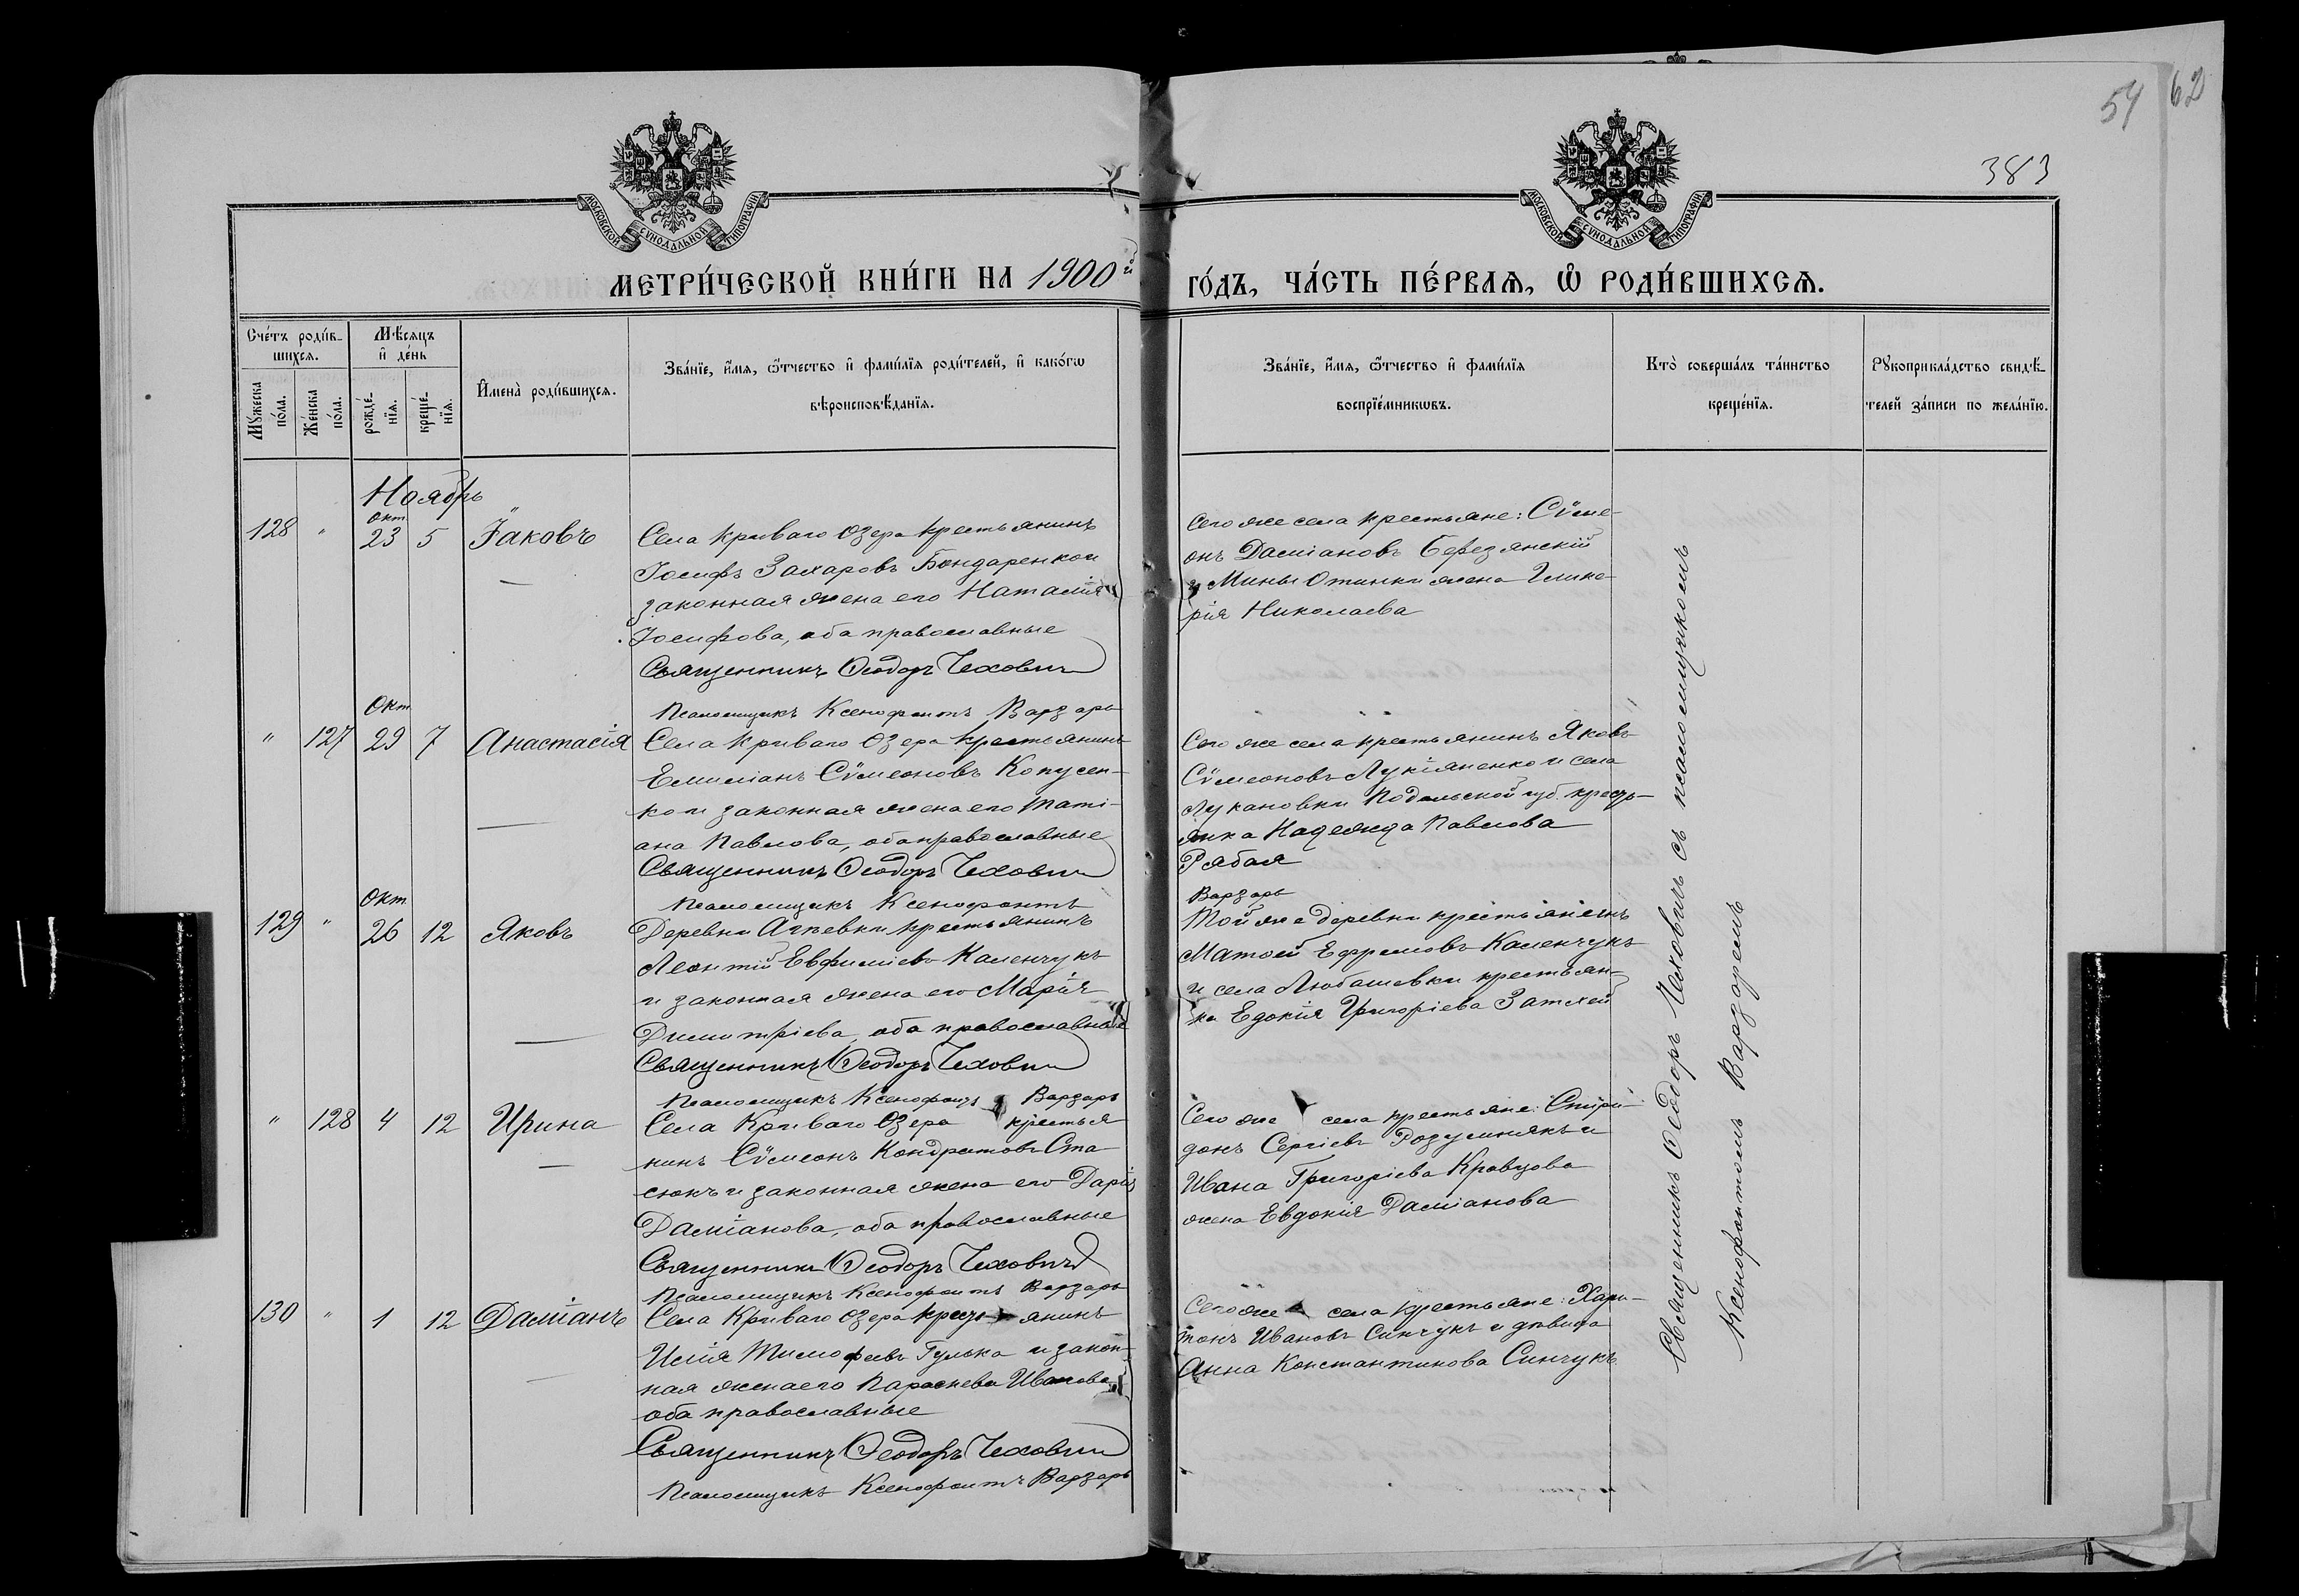 54
62
383
МОСКОВСКОЙ СѴНОДАЛЬНОЙ ТИПОГРАФІИ
МОСКОВСКОЙ СѴНОДАЛЬНОЙ ТИПОГРАФІИ
МЕТРИ́ЧЕСКОЙ КНИ́ГИ НА 1900й
ГО́ДЪ, ЧА́СТЬ ПЕ́РВАѦ, Ѡ РОДИ́ВШИХСѦ.
Сче́тъ роди́в-
шихсѧ.
Мꙋ́жеска по́ла.
Же́нска по́ла.
Мѣ́сѧцъ
и҆ де́нь
рожде́-
нїѧ.
креще́-
нїѧ.
И҆мена̀ роди́вшихсѧ.
Зва́нїе, и҆́мѧ, ѻ҆́тчество и҆ фами́лїѧ роди́телей, и҆ како́гѡ
вѣроисповѣ́данїѧ.
Зва́нїе, и҆́мѧ, ѻ҆́тчество и҆ фами́лїѧ
воспрїе́мникѡвъ.
Кто̀ соверша́лъ та́инство
креще́нїѧ.
Рꙋкоприкла́дство свидѣ́-
телей за́писи по жела́нїю.
Ноябрь
128 " Окт 23 5 Іаковъ
Села Криваго Озера крестьянинъ
Іосифъ Захаровъ Бондаренко и
законная жена его Наталія
Іосифова, оба православные
Священникъ Ѳеодоръ Чеховичъ
Псаломщикъ Ксенофонтъ Варзарь
Сего же села крестьяне: Сѵме-
онъ Даміановъ Березянскій
и Мины жена Глике-
рія Николаева
" 127 Окт 29 7 Анастасія
Села Криваго Озера крестьянинъ
Емиліанъ Сѵмеоновъ Копусен-
ко и законная жена его Таті-
ана Павлова, оба православные
Священникъ Ѳеодоръ Чеховичъ
Псаломщикъ Ксенофонтъ
Варзарь
Сего же села крестьянинъ Яковъ
Сѵмеоновъ Лукіяненко и села
Лукановки Подольской губ. кресть-
янка Надежда Павлова
Рябая
129 " Окт 26 12 Яковъ
Деревни крестьянинъ
Леонтій Евфиміевъ Каленчукъ
и законная жена его Марія
Димитріева, оба православные
Священникъ Ѳеодоръ Чеховичъ
Псаломщикъ Ксенофонтъ Варзарь
Той же деревни крестьянинъ
Матѳей Ефремовъ Каленчукъ
и села Любашевки крестьян-
ка Евдокія Григоріева
" 128 4 12 Ирина
Села Криваго Озера крестья-
нинъ Сѵмеонъ Кондратовъ Ста-
сюкъ и законная жена его Дарія
Даміанова, оба православные
Священникъ Ѳеодоръ Чеховичъ
Псаломщикъ Ксенофонтъ Варзарь
Сего же села крестьяне: Спири-
донъ Сергіевъ Розумнякъ и
Ивана Григоріева Кравцова
жена Евдокія Даміанова
130 " 1 12 Даміанъ
Села Криваго Озера крестьянинъ
Илія Тимофеевъ Гулька и закон-
ная жена его Параскева Иванова
оба православные
Священникъ Ѳеодоръ Чеховичъ
Псаломщикъ Ксенофонтъ Варзарь
Сего же села крестьяне: Хари-
тонъ Ивановъ Синчукъ и дѣвица
Анна Константинова Синчукъ
Священникъ Ѳеодоръ Чеховичъ съ псаломщикомъ
Ксенофонтомъ Варзаремъ